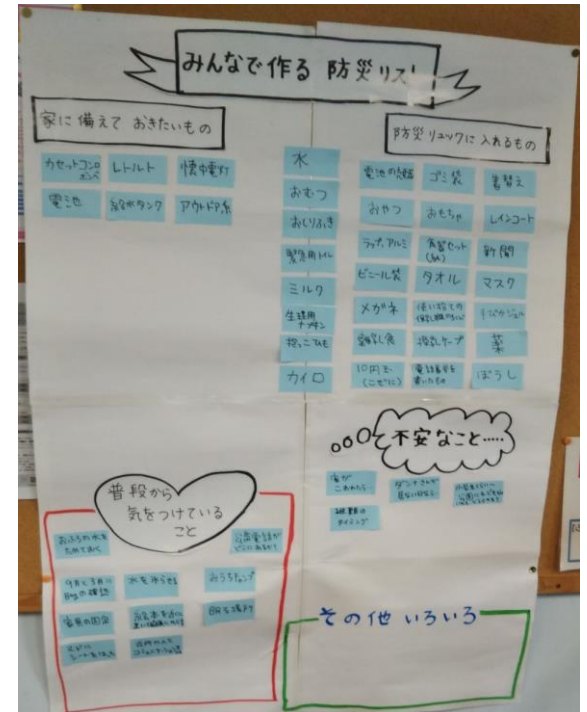 みんなで作る 防災リスト
家に備えて おきたいもの
カセットコンロ
ボンベ
レトルト
懐中電灯
電池
給水タンク
アウトドア系
水
おむつ
おしりふき
緊急用トイレ
ミルク
生理用
ナプキン
抱っこひも
カイロ
防災リュックに 入れるもの
ゴミ袋
着替え
おやつ
おもちゃ
レインコート
ラップ,アルミ
食器セット
(紙)
新聞
ビニール袋
タオル
マスク
メガネ
使い捨ての
離乳食
授乳ケープ
薬
10円玉
(こぜに)
電話番号を
書いたもの
ぼうし
不安なこと.....
家が
こわれたら…
ダンナさんが
避難の
タイミング
普段から
気をつけている
こと
おふろの水を
ためておく
公衆電話が
どこにあるか?
9月と3月に
Bagの確認
水を凍らせる
おうちキャンプ
家具の固定
その他 いろいろ